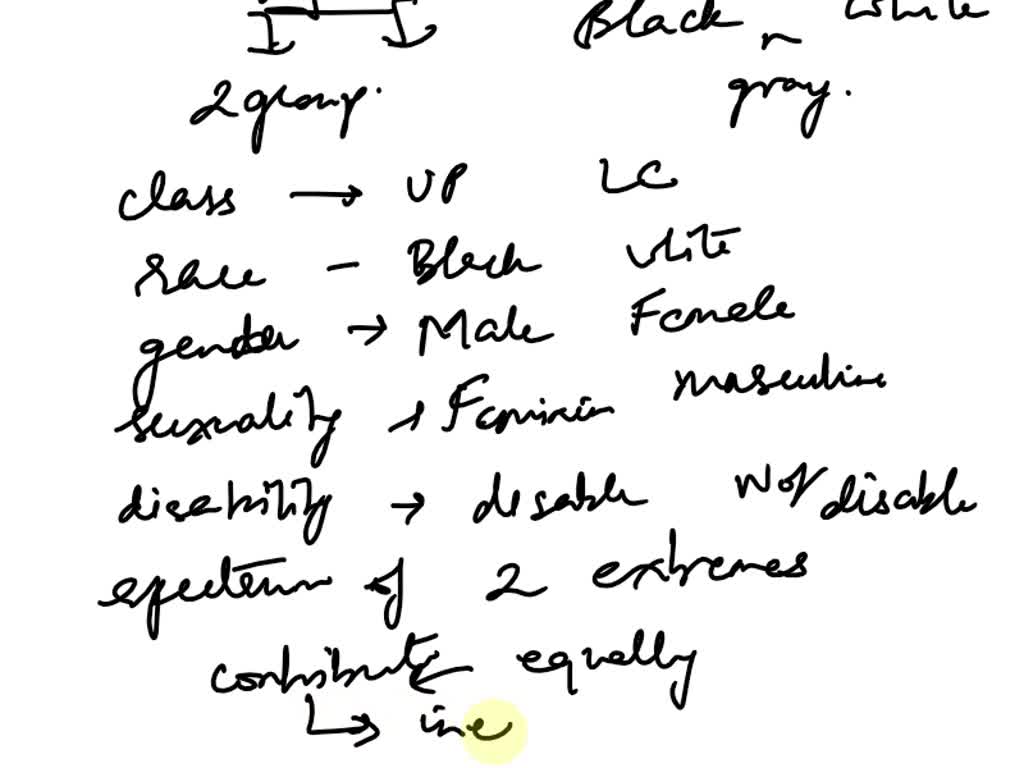 Black white
2 group. gray.
class → UP LC
race - Black white
gender → Male Female
sexuality → Feminin masculine
disability → disable Not disable
spectrum of 2 extremes
contribute ← equally
↳ ine